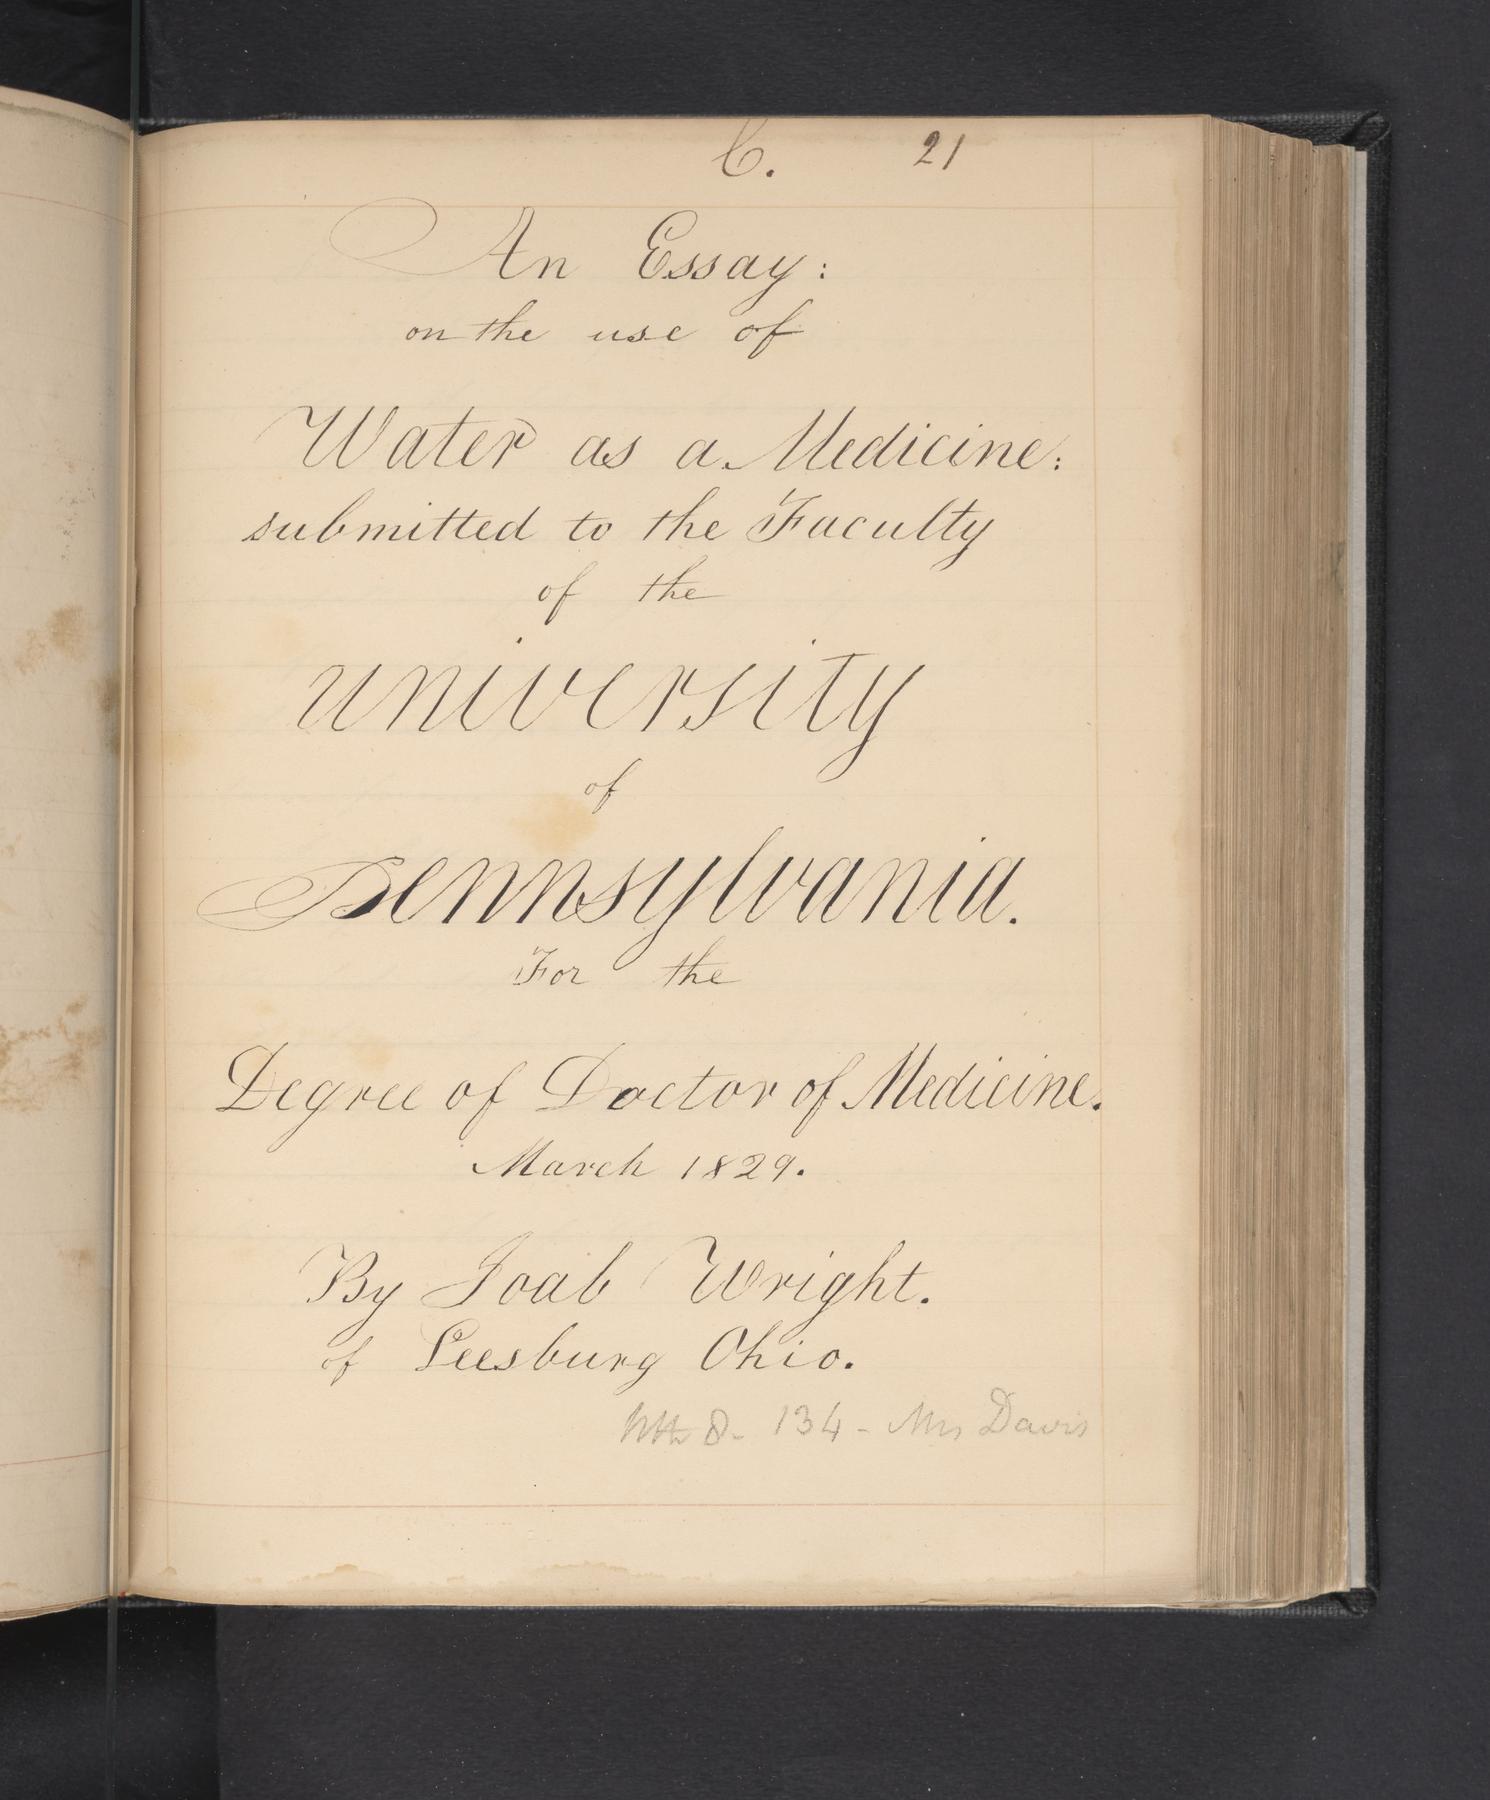 C. 21
An Essay:
on the use of
Water as a Medicine:
submitted to the Faculty
of the
University
of
Pennsylvania.
For the
Degree of Doctor of Medicine.
March 1829.
By Joab Wright.
of Leesburg Ohio.
8- 134 - Mrs Davis